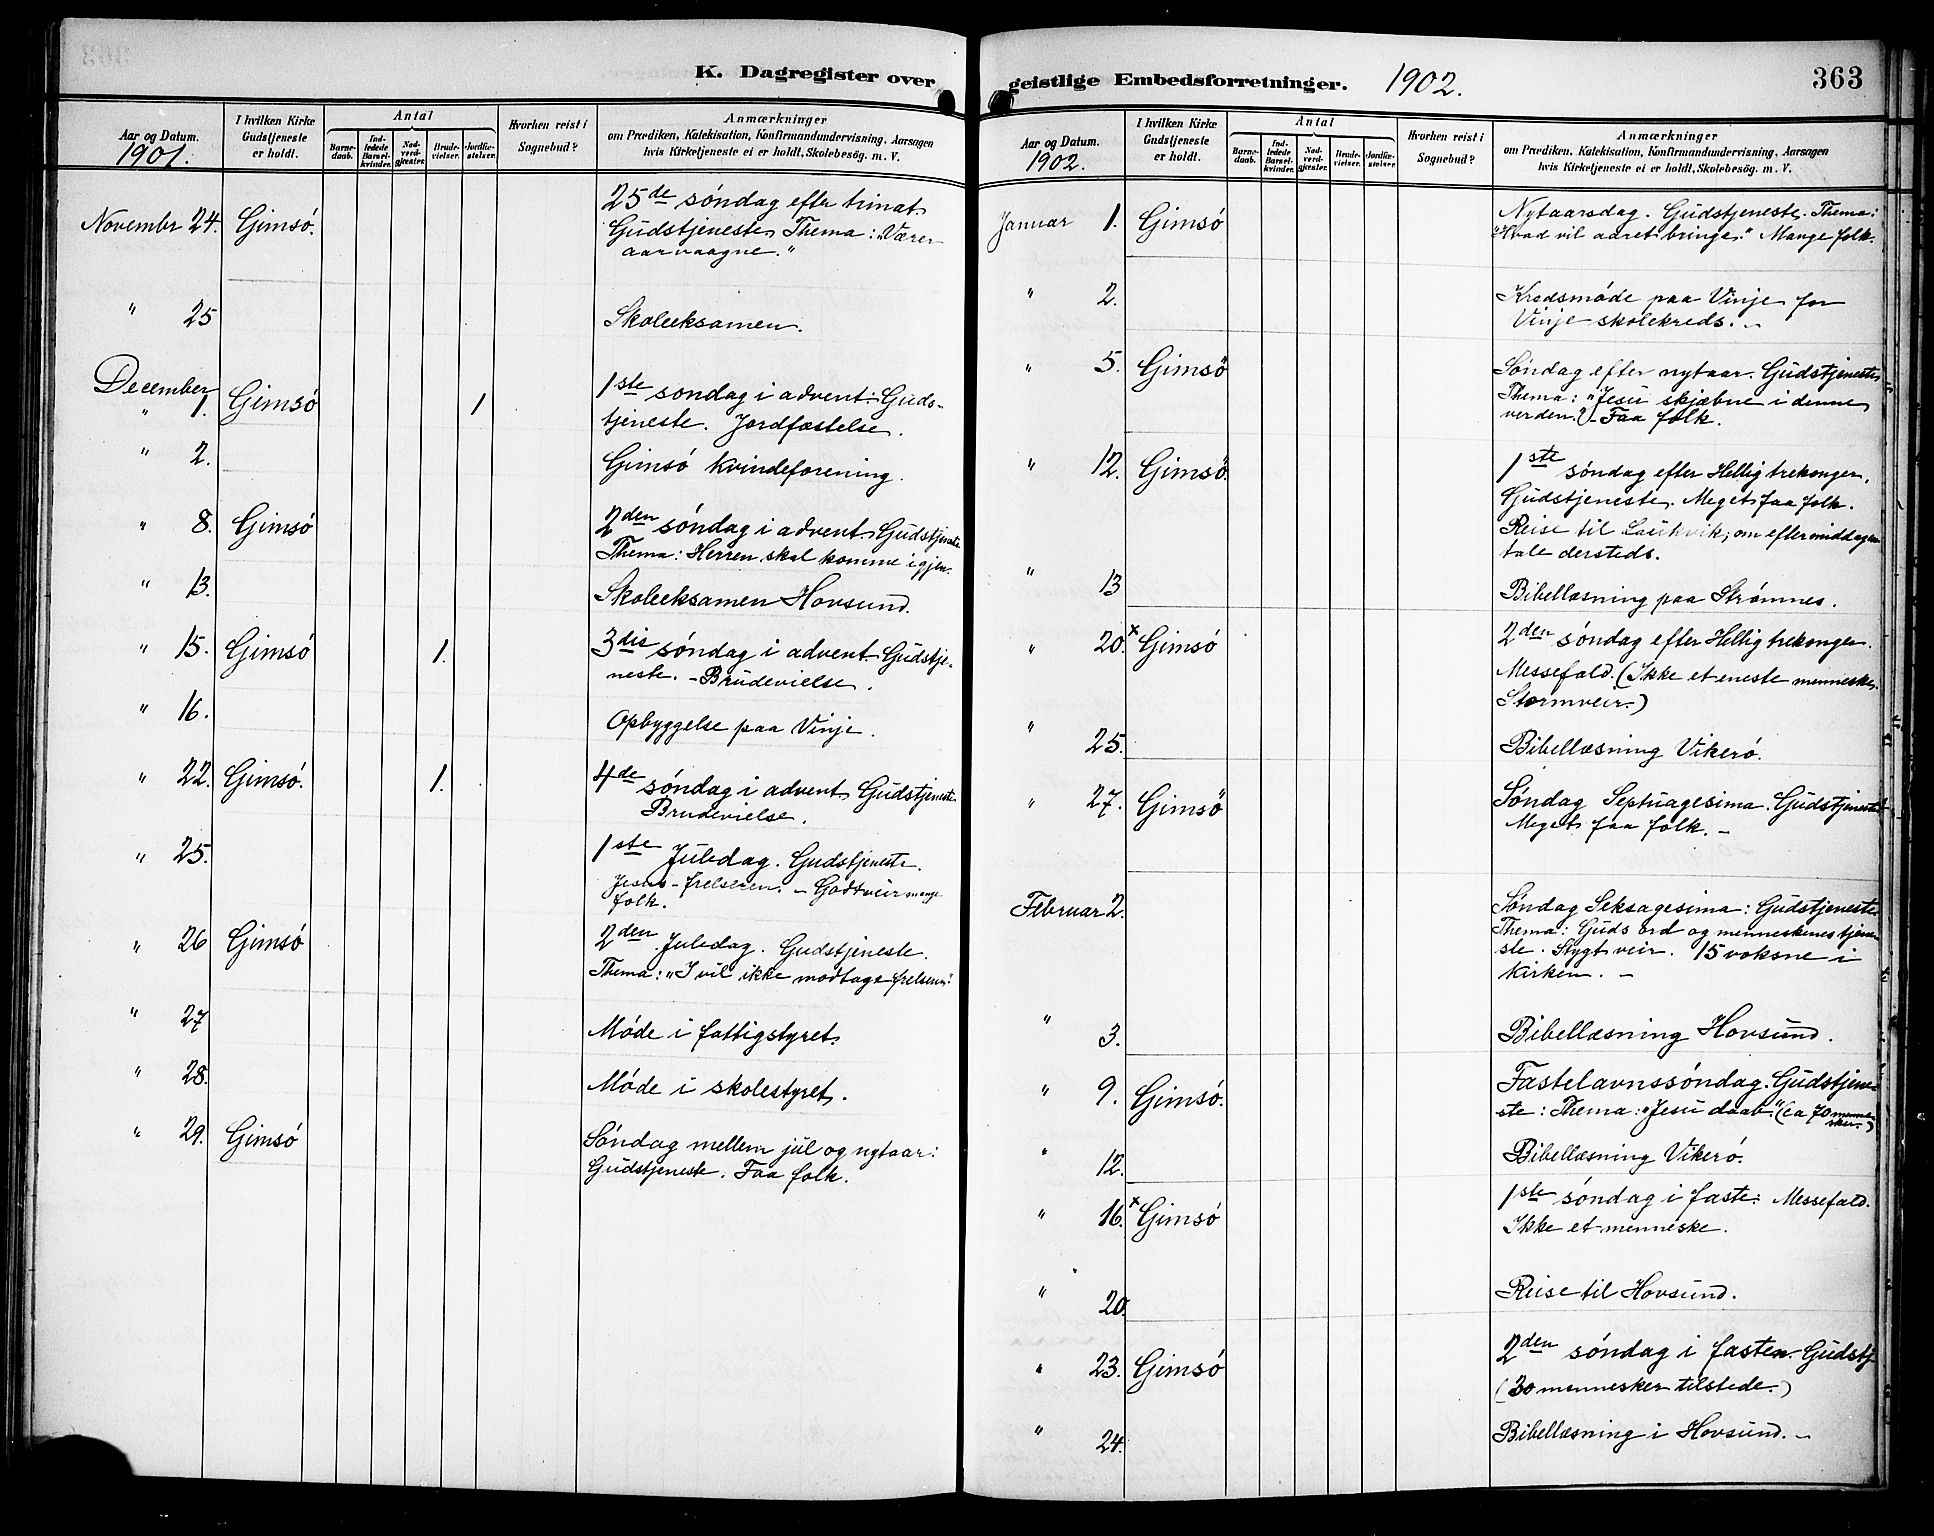 K. Dagregister over
Aar og Datum.
1901.
I hvilken Kirke
Gudstjeneste
er holdt.
Antal
Barne-
daab.
Ind-
ledede
Barsel-
kvinder.
Nad-
verd-
gjester.
Brude-
vielser.
Jordfæ-
stelser.
Hvorhen reist i
Sognebud?
Anmærkninger
om Prædiken, Katekisation, Konfirmandundervisning, Aarsagen
hvis Kirketjeneste ei er holdt, Skolebesög. m. V.
Novembr 24. Gimsó. 25de søndag efter trinat.
Gudstjeneste. Thema: "Værer
aarvaagne."
" 25 Skoleeksamen.
December
" 1. Gimsó 1 1ste søndag i advent: Guds-
tjeneste. Jordfæstelse.
" 2. Gimsó kvindeforening.
" 8. Gimsó 2den søndag i advent. Gudstjeneste
Thema: Herren skal komme igjen.
" 13. Skoleeksamen Hovsund.
" 15. Gimsó 1. 3die søndag i advent. Gudstje-
neste. - Brudevielse.
" 16. Opbyggelse paa Vinje.
" 22. Gimsó. 1. 4de søndag i advent. Gudstjeneste
Brudevielse.
" 25. 1ste Juledag. Gudstjeneste.
Jesus - frelseren. - Godtveir mange
folk.
" 26 Gimsó 2den Juledag. Gudstjeneste.
Thema: "I vil ikke modtage frelsen".
" 27 Møde i fattigstyret.
" 28. Møde i skolestyret.
" 29. Gimsó Søndag mellem jul og nytaar:
Gudstjeneste. Faa folk.
geistlige Embedsforretninger. 1902.
363
Aar og Datum.
1902.
I hvilken Kirke
Gudstjeneste
er holdt.
Antal
Barne-
daab.
Ind-
ledede
Barsel-
kvinder.
Nad-
verd-
gjester.
Brude-
vielser.
Jordfæ-
stelser.
Hvorhen reist i
Sognebud?
Anmærkninger
om Prædiken, Katekisation, Konfirmandundervisning, Aarsagen
hvis Kirketjeneste ei er holdt, Skolebesög. m. V.
Januar 1. Gimsó Nytaarsdag. Gudstjeneste. Thema:
"Hvad vil aaret bringe." Mange folk.
" 2. Kredsmøde paa Vinje for
Vinje skolekreds. -
" 5. Gimsö Søndag efter nytaar. Gudstjeneste
Thema: "Jesu skjæbne i denne
verden." - Faa folk.
" 12. Gimsö. 1ste søndag efter Hellig trekonger.
Gudstjeneste. Meget faa folk.
Reise til Laukvik; om eftermiddagen
tale dersteds.
" 13 Bibellæsning paa Strømnes.
" 20. x Gimsó 2den søndag efter Hellig trekonger.
Messefald. (Ikke et eneste menneske.
Stormveir.)
" 25. Bibellæsning Vikerø.
" 27. Gimsö Søndag Septuagesima. Gudstjeneste
Meget faa folk. -
Februar 2. Søndag Seksagesima: Gudstjeneste
Thema: Guds ord og menneskenes tjene-
ste. Stygt veir. 15 voksne i
kirken. -
" 3. Bibellæsning Hovsund.
" 9. Gimsó. Fastelavnssøndag. Gudstjene-
ste: Thema: "Jesu daab." (ca 70 menne-
sker.)
" 12. Bibellæsning Vikerø.
" 16. x Gimsó 1ste søndag i faste: Messefald.
Ikke et menneske.
" 20. Reise til Hovsund.
" 23. Gimsó 2den søndag i fasten. Gudstj
(30 mennesker tilstede.)
" 24. Bibellæsning i Hovsund. -